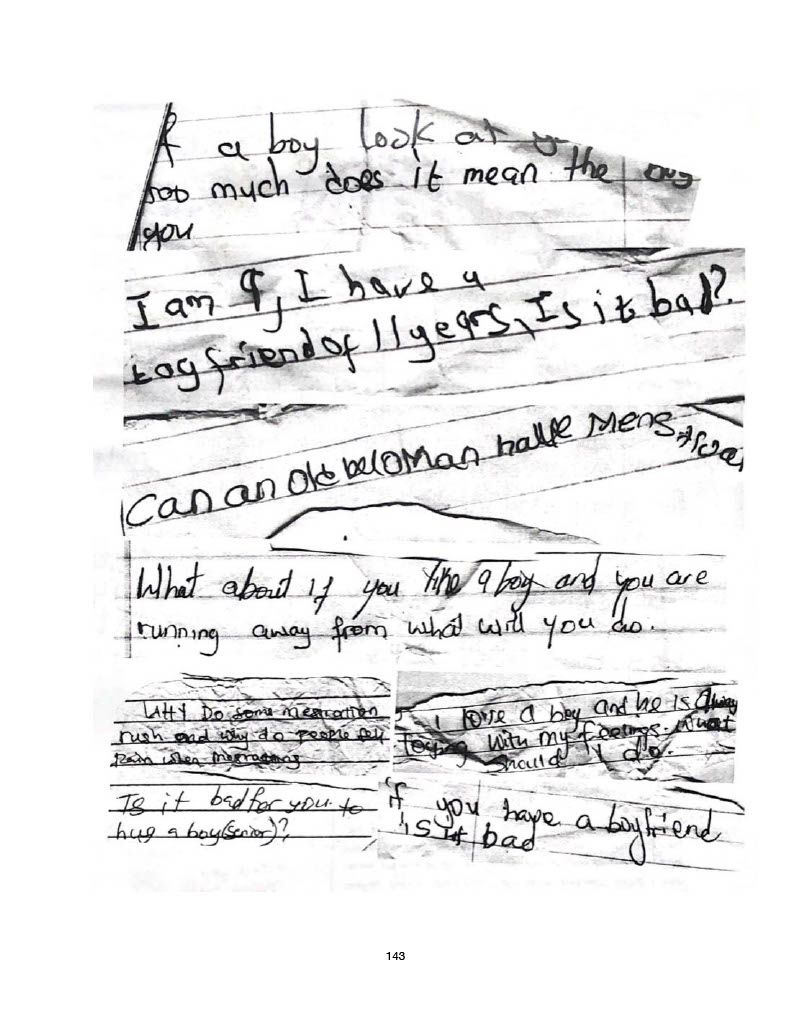 If a boy look at
too much does it mean the boy
you
I am 9, I have a
boyfriend of 11 years, Is it bad?
Can an old woman have Menstrua
What about if you like a boy and you are
running away from what will you do.
WHY Do some
rush and why do people fell
pain when
I love a boy and he is always
toying with my feelings. What
should I do.
Is it bad for you to
hug a boy(senior)?
if you have a boyfriend
is it bad
143